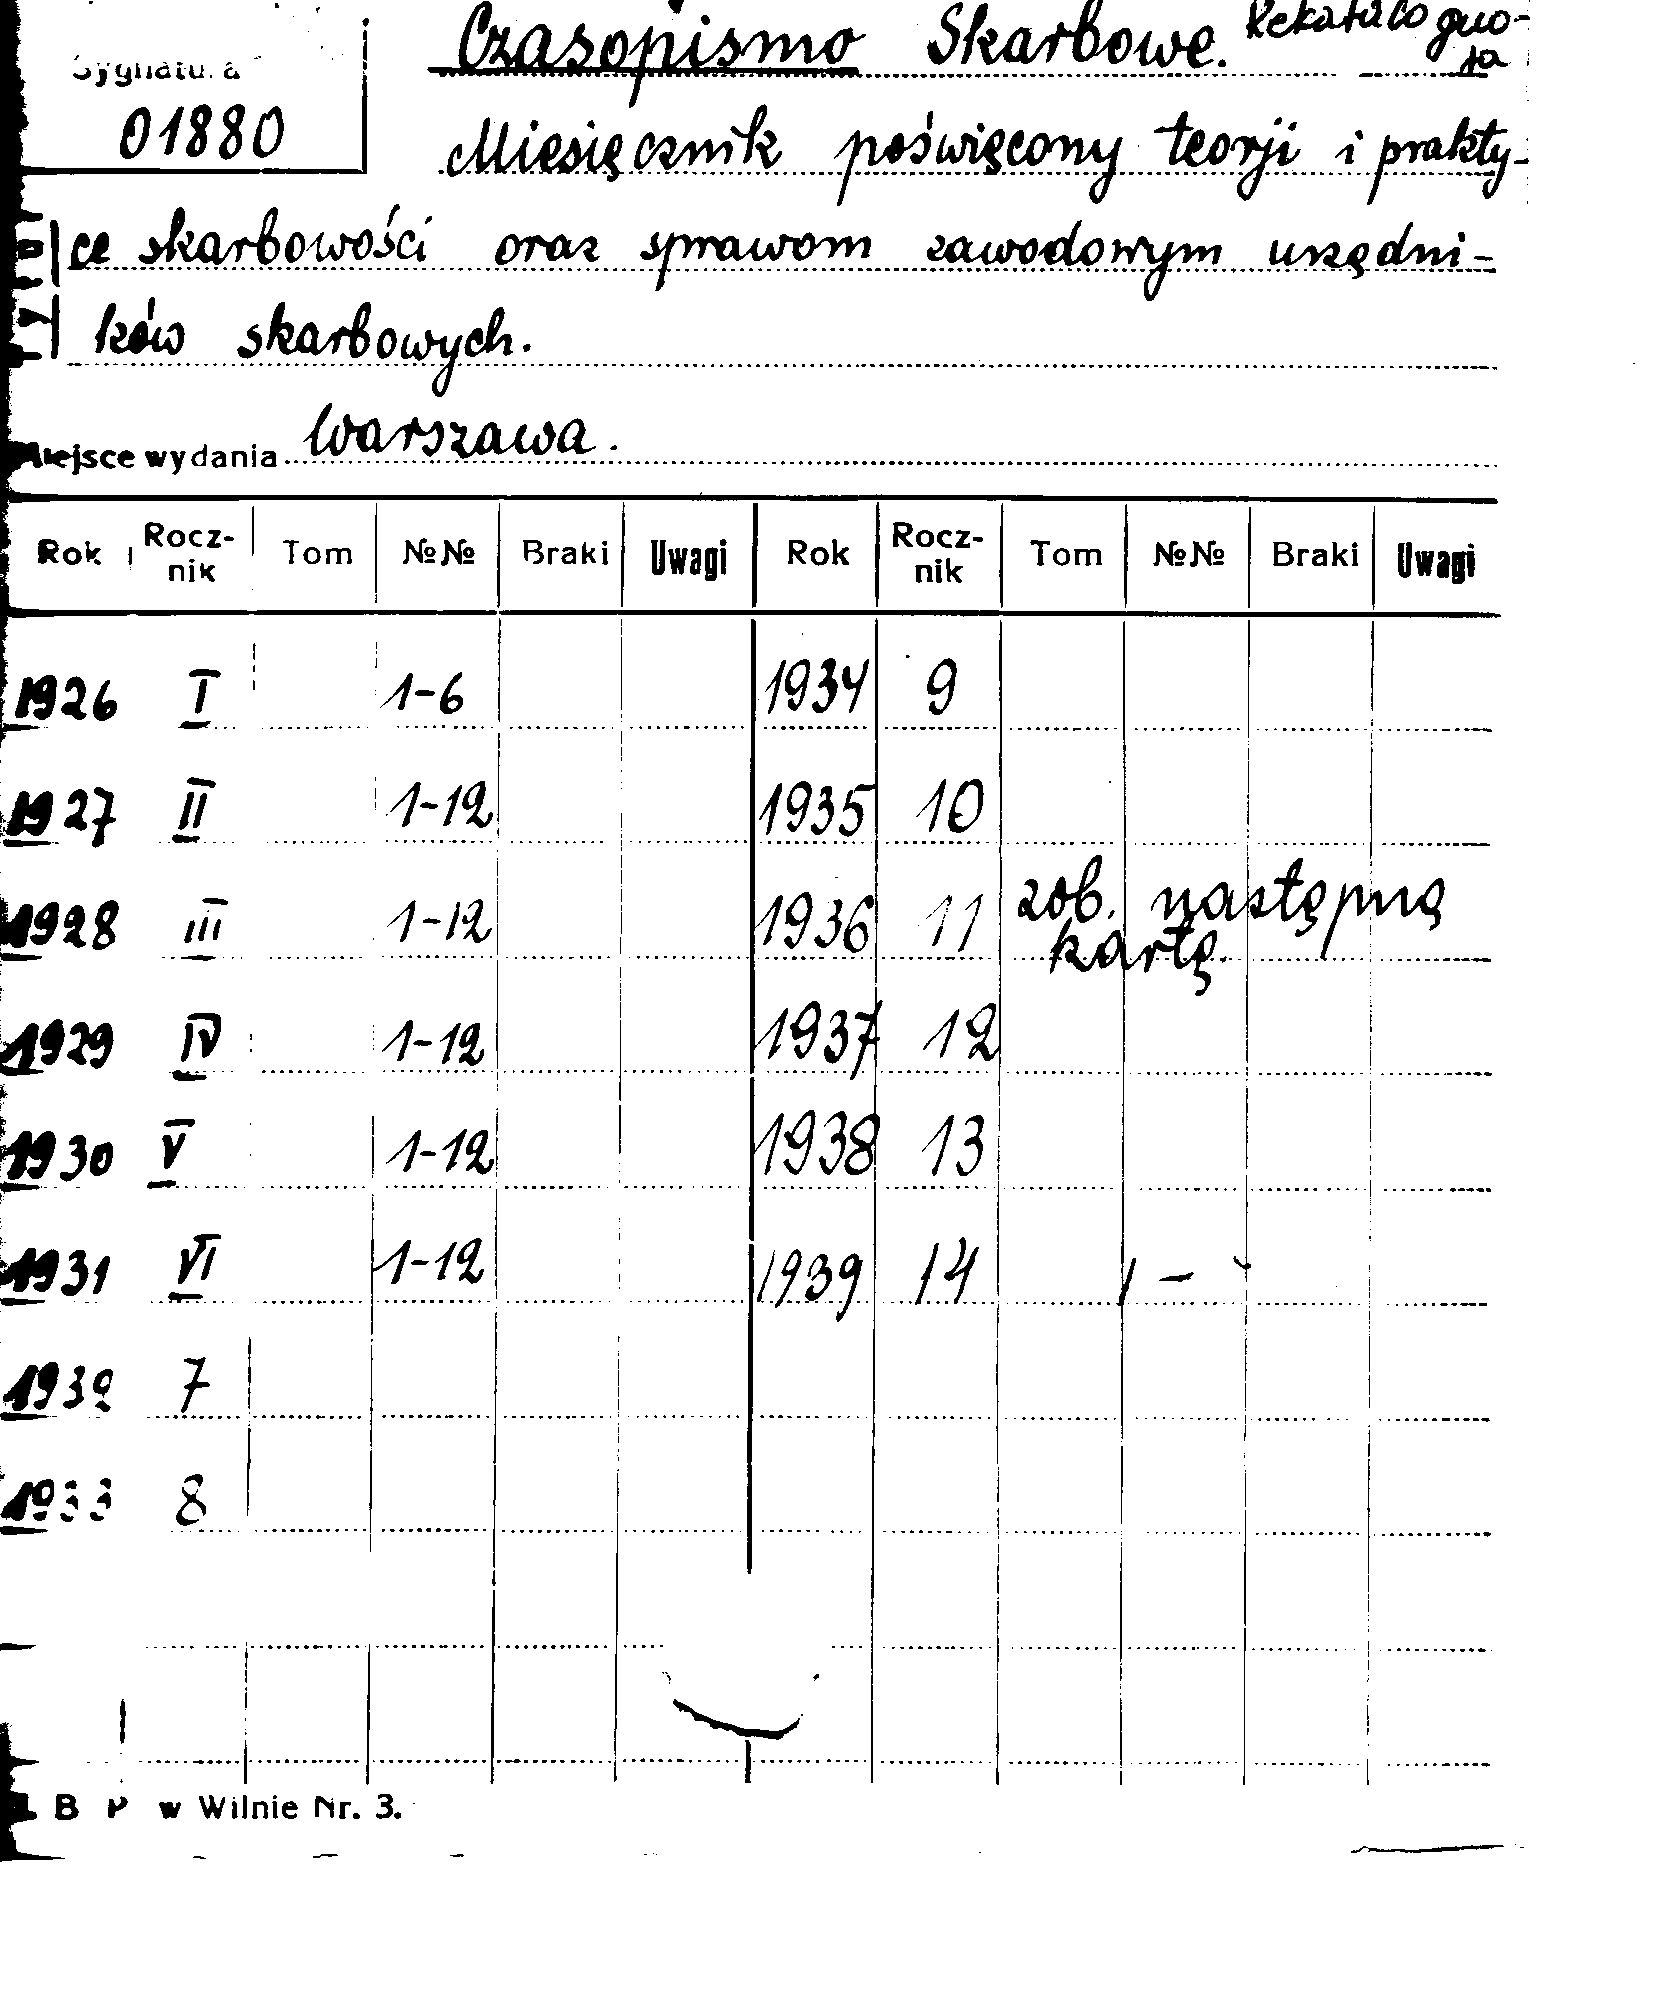 Sygnatura
01880
Czasopismo Skarbowe.
Miesięcznik poświęcony teorji i prakty-
ce skarbowości oraz sprawom zawodowym urzędni-
ków skarbowych.
Miejsce wydania Warszawa.
Rok Rocz-nik Tom №№ Braki Uwagi Rok Rocz-nik Tom №№ Braki Uwagi
1926 I 1-6 1934 9
1927 II 1-12 1935 10
1928 III 1-12 1936 11 zob. następną
kartę.
1929 IV 1-12 1937 12
1930 V 1-12 1938 13
1931 VI 1-12 1939 14 1 -
1932 7
1933 8
B P w Wilnie Nr. 3.